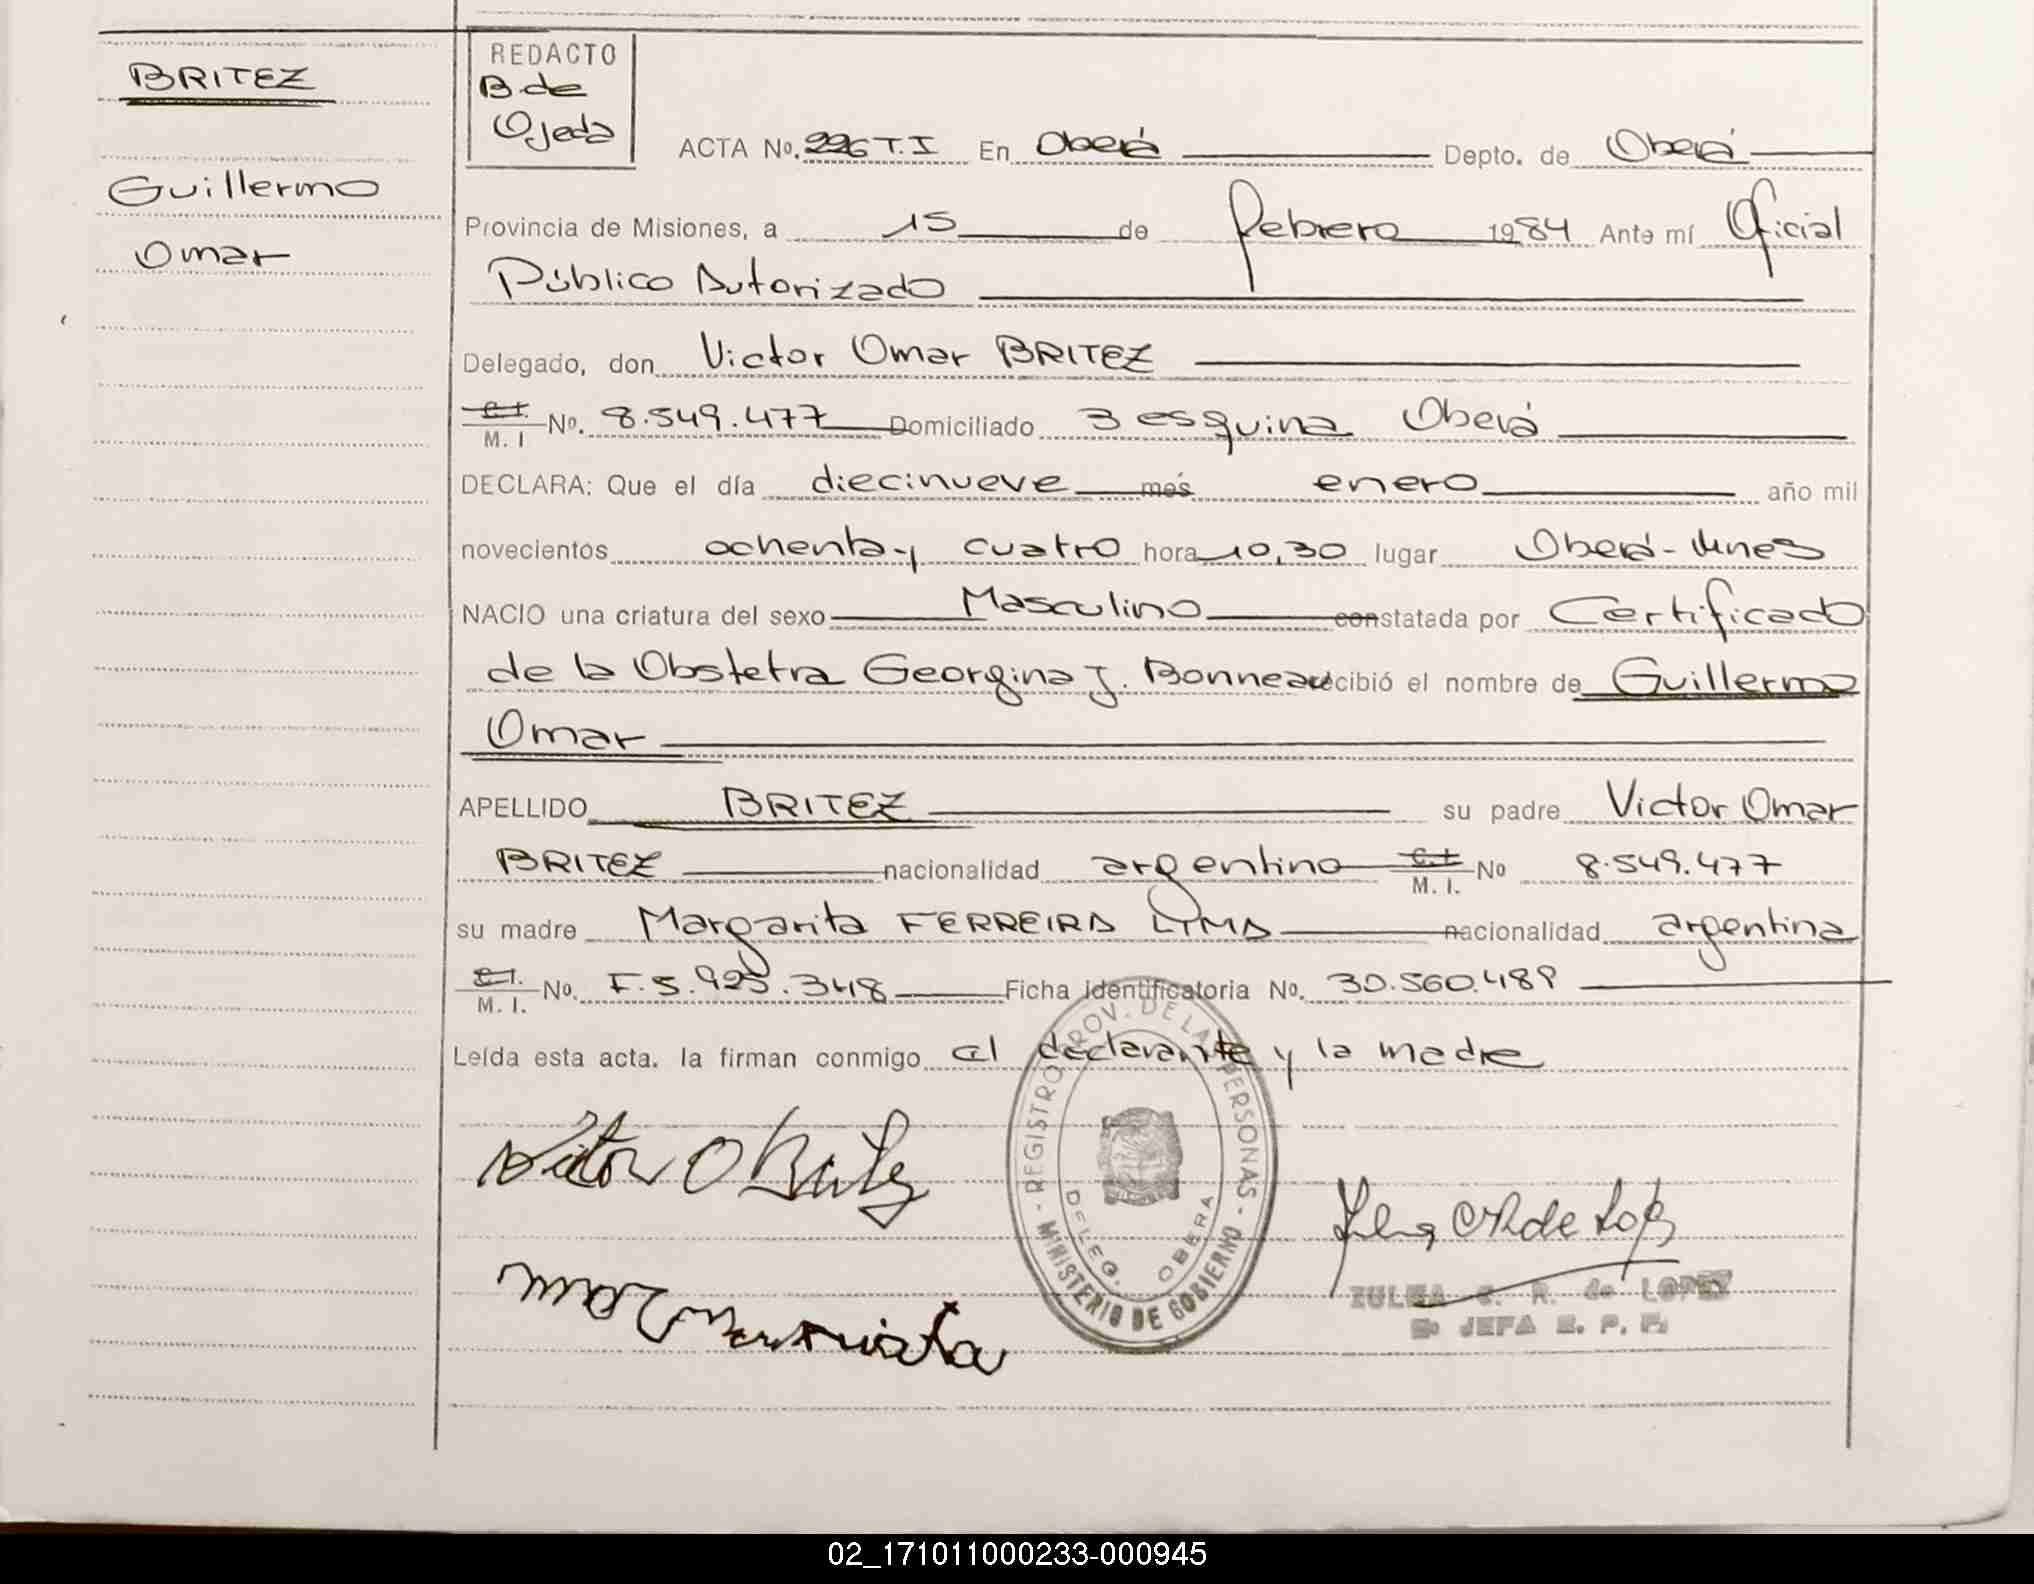 BRITEZ
Guillermo
Omar
REDACTO
B. de
Ojeda
ACTA No. 226 T.I En Oberá Depto. de Oberá
Provincia de Misiones, a 15 de febrero 1984 Ante mí Oficial
Público Autorizado
Delegado, don Victor Omar BRITEZ
C.I. M. I No. 8.549.477 Domiciliado 3 esquina Oberá
DECLARA: Que el día diecinueve mes enero año mil
novecientos ochenta y cuatro hora 10,30 lugar Oberá-Mnes
NACIO una criatura del sexo Masculino constatada por Certificado
de la Obstetra Georgina J. Bonneau recibió el nombre de Guillermo
Omar
APELLIDO BRITEZ su padre Victor Omar
BRITEZ nacionalidad argentino C.I. M. I. No 8.549.477
su madre Margarita FERREIRA LIMA nacionalidad argentina
C.I. M. I. No. F.5.925.348 Ficha Identificatoria No. 30.560.489
Leída esta acta. la firman conmigo el declarante y la madre
REGISTRO PROV. DE LAS PERSONAS
DELEG. OBERA
MINISTERIO DE GOBIERNO
ZULMA C. R. de LOPEZ
JEFA
02_171011000233-000945